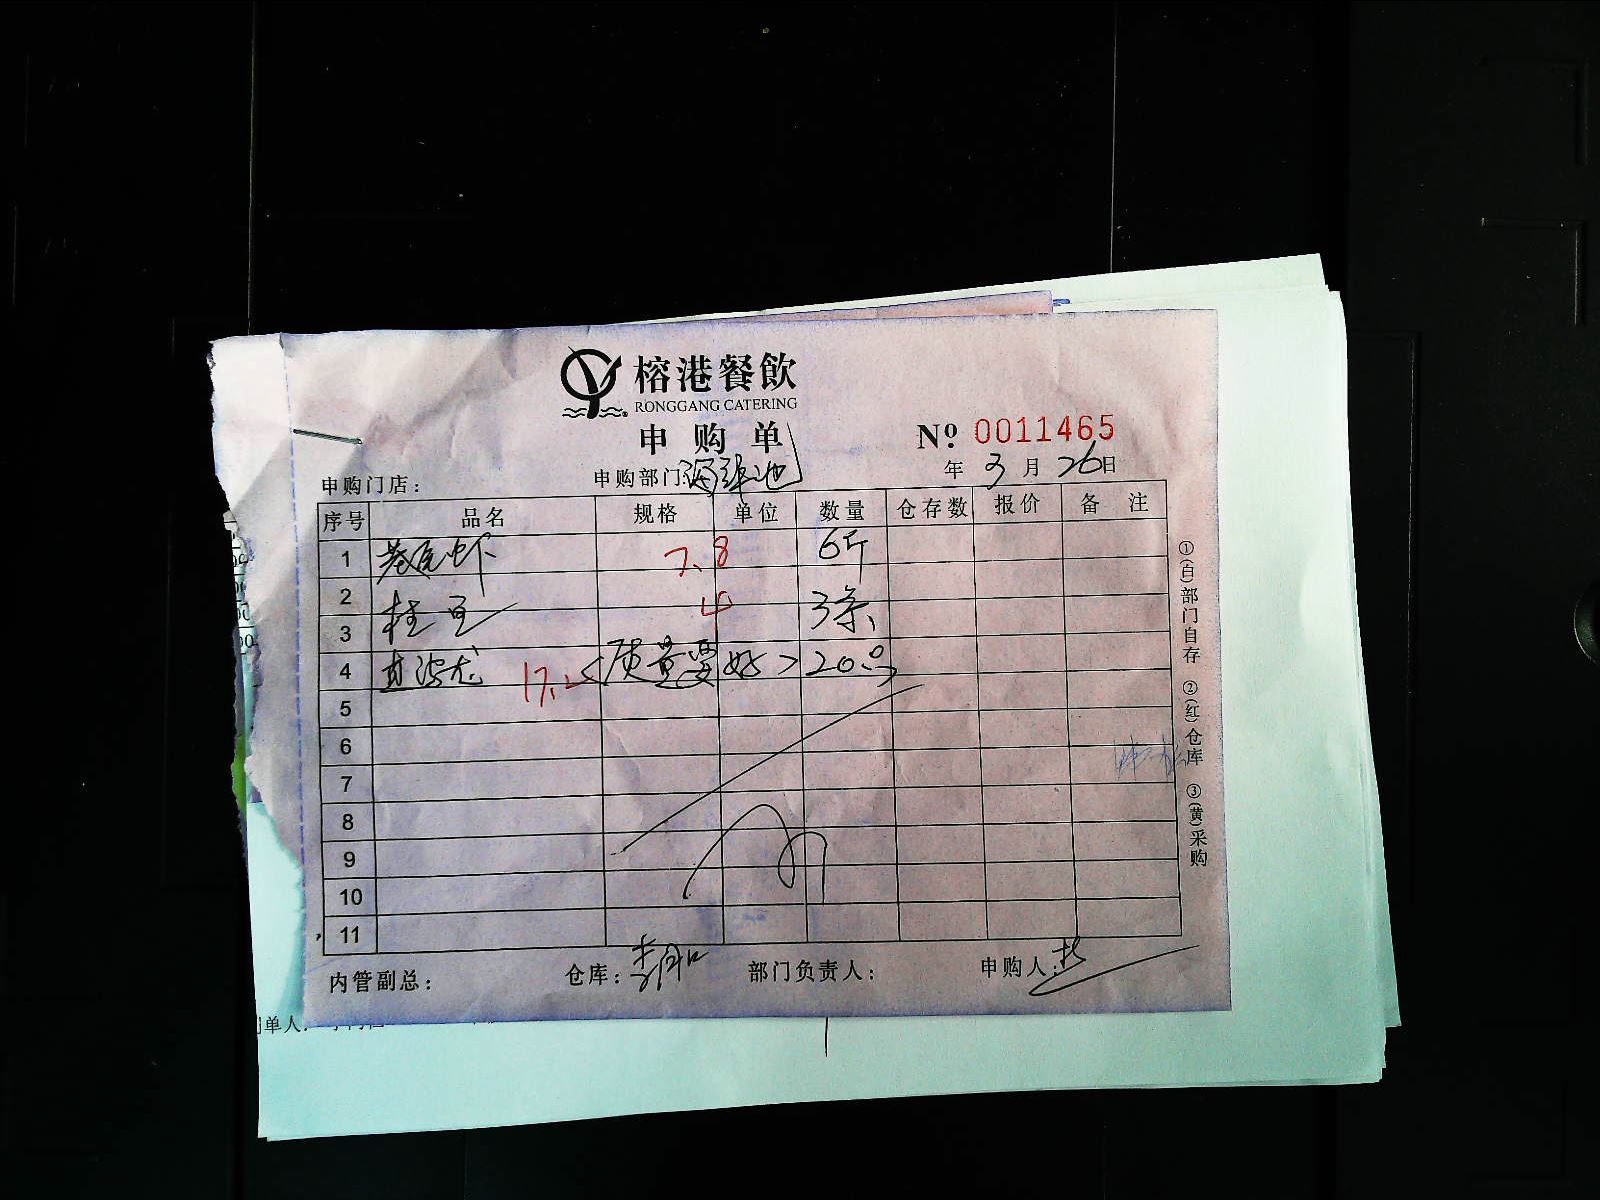 榕港餐飲
RONGGANG CATERING
申购单
Nº 0011465
年 3 月 26 日
申购门店： 申购部门：海鲜池
序号 品名 规格 单位 数量 仓存数 报价 备注
1 基尾虾 7.8 6斤
2
3 桂鱼 4 3条
4 17.2 <质量要好> 20只
5
6
7
8
9
10
11
内管副总： 仓库： 部门负责人： 申购人：
①(白)部门自存 ②(红)仓库 ③(黄)采购
单人：